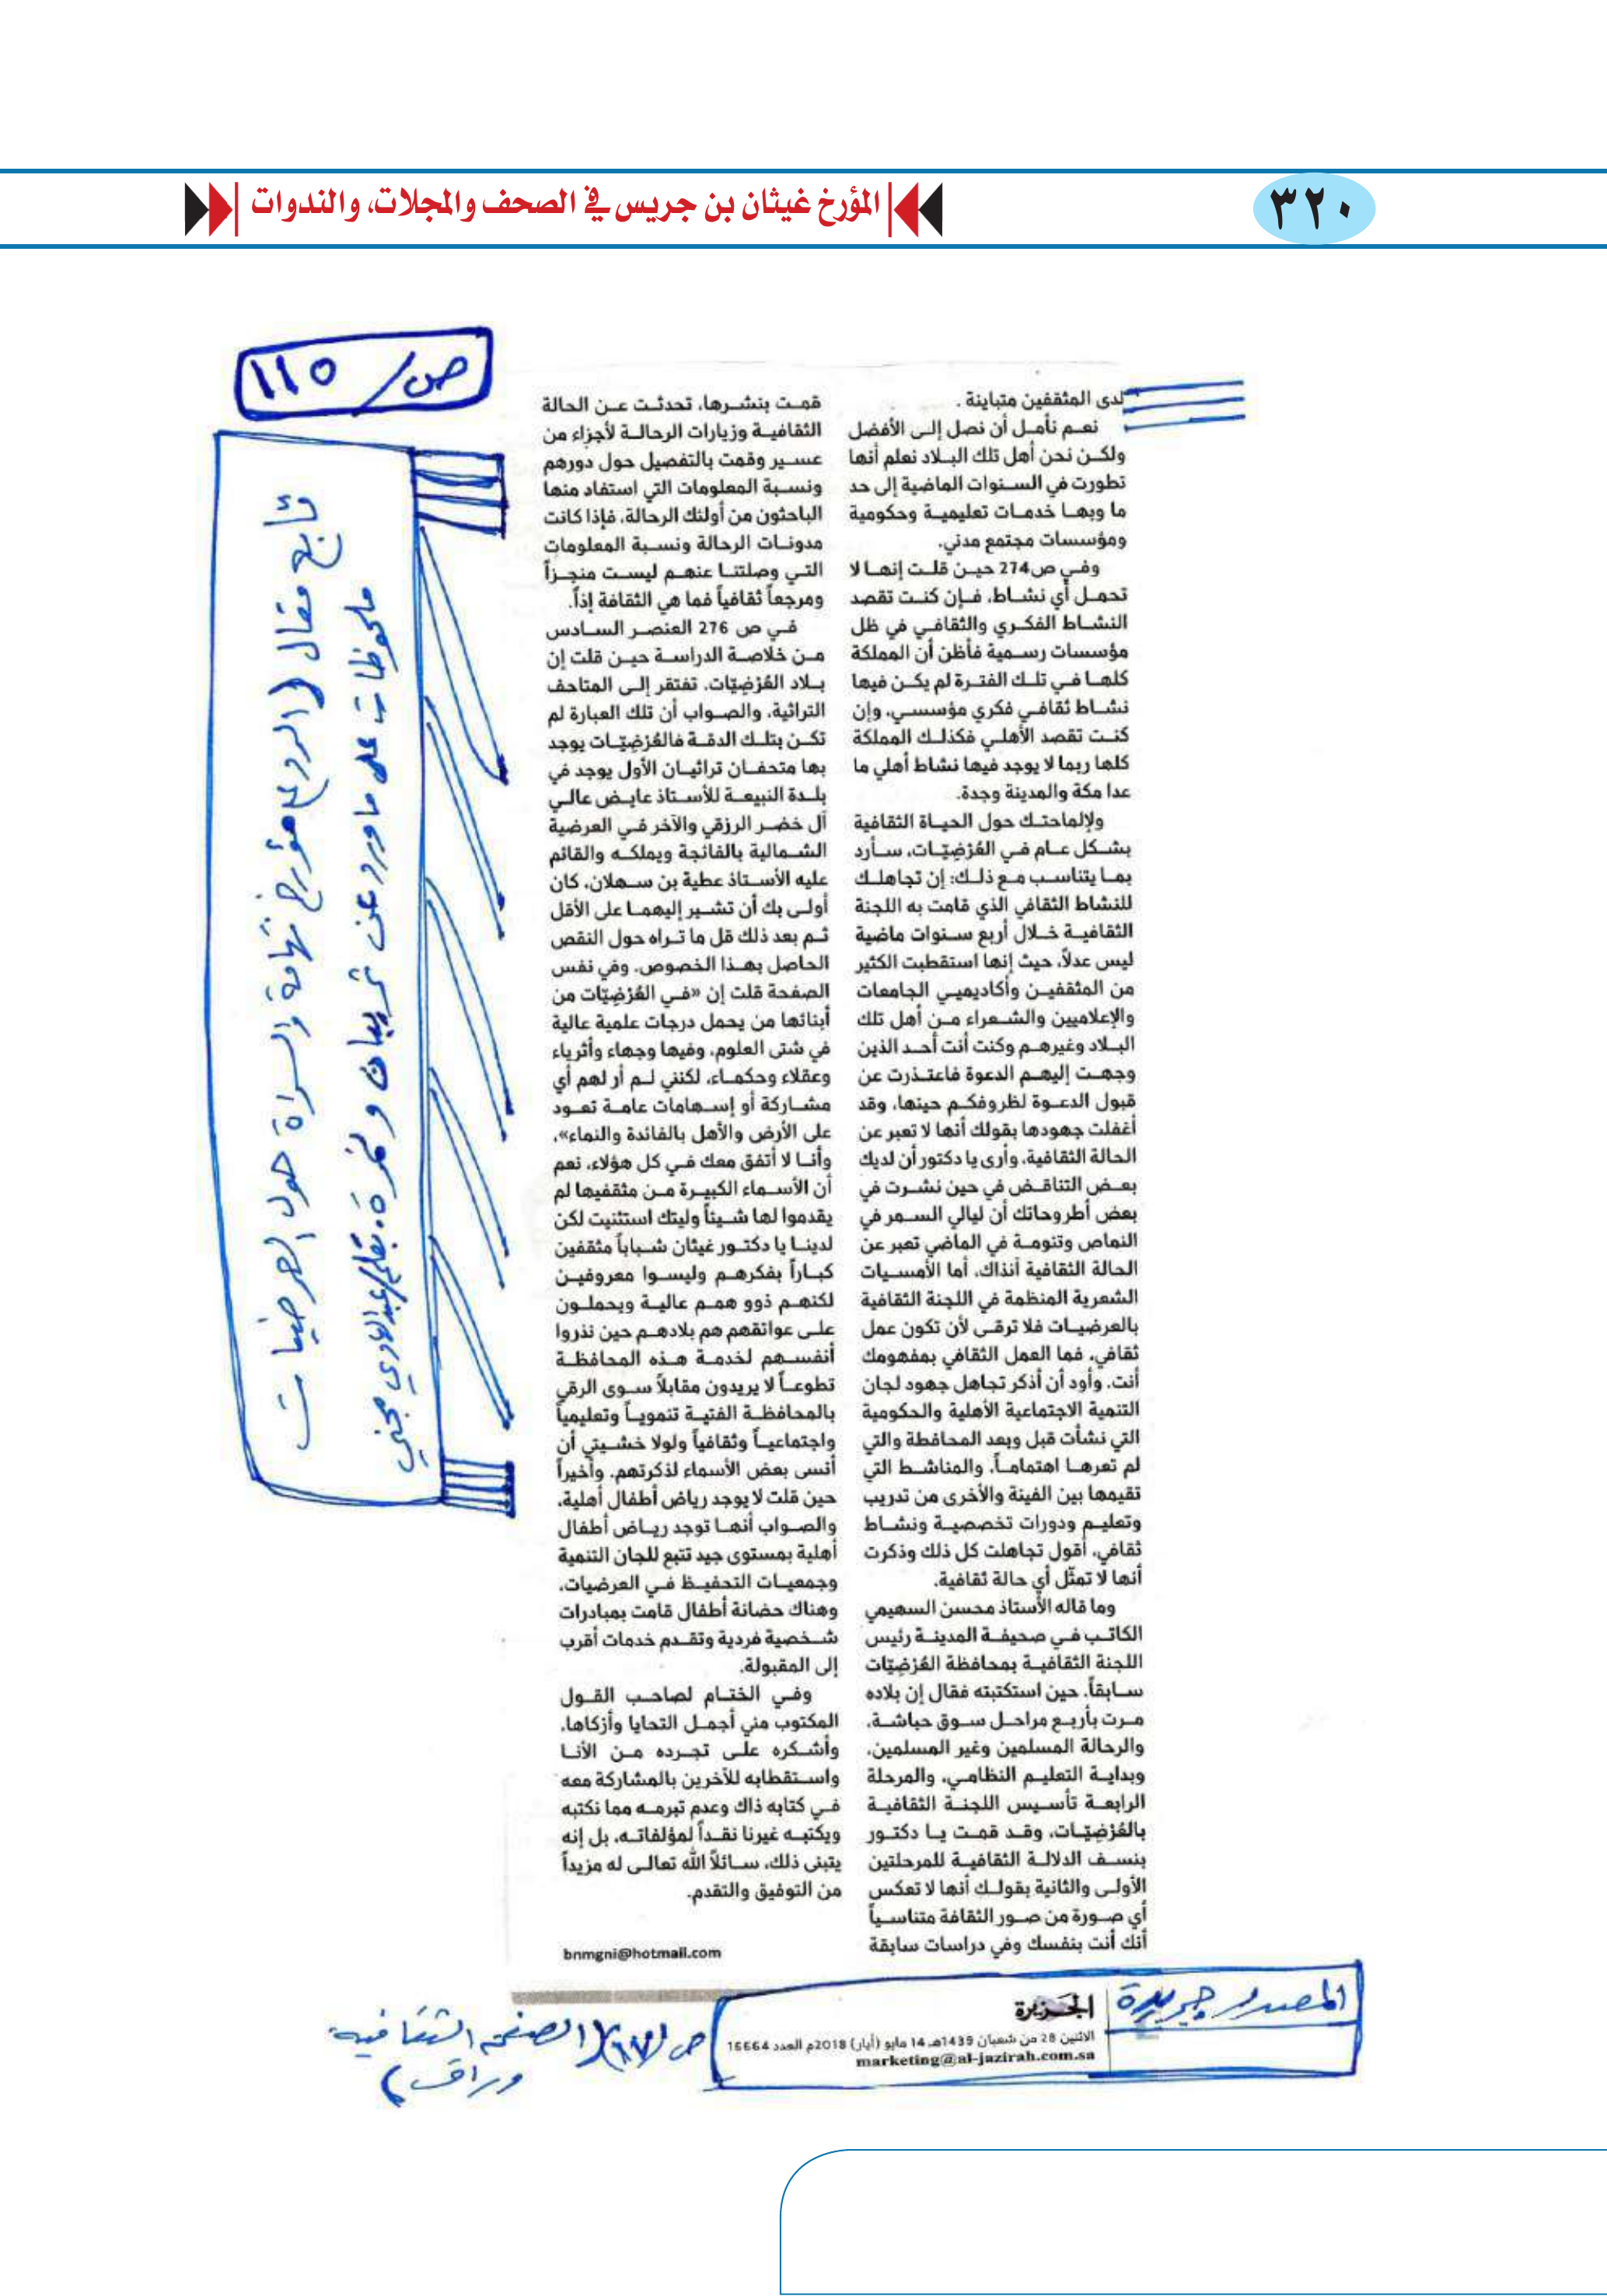 ٣٢٠
المؤرخ غيثان بن جريس في الصحف والمجلات، والندوات
ص/ ١١٥
لدى المثقفين متباينة .
نعم نأمل أن نصل إلى الأفضل
ولكن نحن أهل تلك البلاد نعلم أنها
تطورت في السنوات الماضية إلى حد
ما وبها خدمات تعليمية وحكومية
ومؤسسات مجتمع مدني.
وفي ص274 حين قلت إنها لا
تحمل أي نشاط، فإن كنت تقصد
النشاط الفكري والثقافي في ظل
مؤسسات رسمية فأظن أن المملكة
كلها في تلك الفترة لم يكن فيها
نشاط ثقافي فكري مؤسسي، وإن
كنت تقصد الأهلي فكذلك المملكة
كلها ربما لا يوجد فيها نشاط أهلي ما
عدا مكة والمدينة وجدة.
ولإلماحتك حول الحياة الثقافية
بشكل عام في العُرْضِيّات، سأرد
بما يتناسب مع ذلك: إن تجاهلك
للنشاط الثقافي الذي قامت به اللجنة
الثقافية خلال أربع سنوات ماضية
ليس عدلاً، حيث إنها استقطبت الكثير
من المثقفين وأكاديميي الجامعات
والإعلاميين والشعراء من أهل تلك
البلاد وغيرهم وكنت أنت أحد الذين
وجهت إليهم الدعوة فاعتذرت عن
قبول الدعوة لظروفكم حينها، وقد
أغفلت جهودها بقولك أنها لا تعبر عن
الحالة الثقافية، وأرى يا دكتور أن لديك
بعض التناقض في حين نشرت في
بعض أطروحاتك أن ليالي السمر في
النماص وتنومة في الماضي تعبر عن
الحالة الثقافية آنذاك، أما الأمسيات
الشعرية المنظمة في اللجنة الثقافية
بالعرضيات فلا ترقى لأن تكون عمل
ثقافي، فما العمل الثقافي بمفهومك
أنت، وأود أن أذكر تجاهل جهود لجان
التنمية الاجتماعية الأهلية والحكومية
التي نشأت قبل وبعد المحافظة والتي
لم تعرها اهتماماً، والمناشط التي
تقيمها بين الفينة والأخرى من تدريب
وتعليم ودورات تخصصية ونشاط
ثقافي، أقول تجاهلت كل ذلك وذكرت
أنها لا تمثّل أي حالة ثقافية.
وما قاله الأستاذ محسن السهيمي
الكاتب في صحيفة المدينة رئيس
اللجنة الثقافية بمحافظة العُرْضِيّات
سابقاً، حين استكتبته فقال إن بلاده
مرت بأربع مراحل سوق حباشة،
والرحالة المسلمين وغير المسلمين،
وبداية التعليم النظامي، والمرحلة
الرابعة تأسيس اللجنة الثقافية
بالعُرْضِيّات، وقد قمت يا دكتور
بنسف الدلالة الثقافية للمرحلتين
الأولى والثانية بقولك أنها لا تعكس
أي صورة من صور الثقافة متناسياً
أنك أنت بنفسك وفي دراسات سابقة
قمت بنشرها، تحدثت عن الحالة
الثقافية وزيارات الرحالة لأجزاء من
عسير وقمت بالتفصيل حول دورهم
ونسبة المعلومات التي استفاد منها
الباحثون من أولئك الرحالة، فإذا كانت
مدونات الرحالة ونسبة المعلومات
التي وصلتنا عنهم ليست منجزاً
ومرجعاً ثقافياً فما هي الثقافة إذاً.
في ص 276 العنصر السادس
من خلاصة الدراسة حين قلت إن
بلاد العُرْضِيّات، تفتقر إلى المتاحف
التراثية، والصواب أن تلك العبارة لم
تكن بتلك الدقة فالعُرْضِيّات يوجد
بها متحفان تراثيان الأول يوجد في
بلدة النبيعة للأستاذ عايض عالي
آل خضر الرزقي والآخر في العرضية
الشمالية بالفائجة ويملكه والقائم
عليه الأستاذ عطية بن سهلان، كان
أولى بك أن تشير إليهما على الأقل
ثم بعد ذلك قل ما تراه حول النقص
الحاصل بهذا الخصوص. وفي نفس
الصفحة قلت إن «في العُرْضِيّات من
أبنائها من يحمل درجات علمية عالية
في شتى العلوم، وفيها وجهاء وأثرياء
وعقلاء وحكماء، لكنني لم أر لهم أي
مشاركة أو إسهامات عامة تعود
على الأرض والأهل بالفائدة والنماء»،
وأنا لا أتفق معك في كل هؤلاء، نعم
أن الأسماء الكبيرة من مثقفيها لم
يقدموا لها شيئاً وليتك استثنيت لكن
لدينا يا دكتور غيثان شباباً مثقفين
كباراً بفكرهم وليسوا معروفين
لكنهم ذوو همم عالية ويحملون
على عواتقهم هم بلادهم حين نذروا
أنفسهم لخدمة هذه المحافظة
تطوعاً لا يريدون مقابلاً سوى الرقي
بالمحافظة الفتية تنموياً وتعليمياً
واجتماعياً وثقافياً ولولا خشيتي أن
أنسى بعض الأسماء لذكرتهم. وأخيراً
حين قلت لا يوجد رياض أطفال أهلية،
والصواب أنها توجد رياض أطفال
أهلية بمستوى جيد تتبع للجان التنمية
وجمعيات التحفيظ في العرضيات،
وهناك حضانة أطفال قامت بمبادرات
شخصية فردية وتقدم خدمات أقرب
إلى المقبولة.
وفي الختام لصاحب القول
المكتوب مني أجمل التحايا وأزكاها،
وأشكره على تجرده من الأنا
واستقطابه للآخرين بالمشاركة معه
في كتابه ذاك وعدم تبرمه مما نكتبه
ويكتبه غيرنا نقداً لمؤلفاته، بل إنه
يتبنى ذلك، سائلاً الله تعالى له مزيداً
من التوفيق والتقدم.
bnmgni@hotmail.com
تابع مقال (الرد على مؤرخ تهامة والسراة حول العرضيات
ملحوظات على ما ورد عن ثريبان ونمرة. بقلم/عبدالهادي مجني
المصدر جريدة
الجزيرة
الاثنين 28 من شعبان 1439هـ 14 مايو (أيار) 2018م العدد 16664
marketing@al-jazirah.com.sa
ص (١٧) (الصفحة الثقافية
وراق)